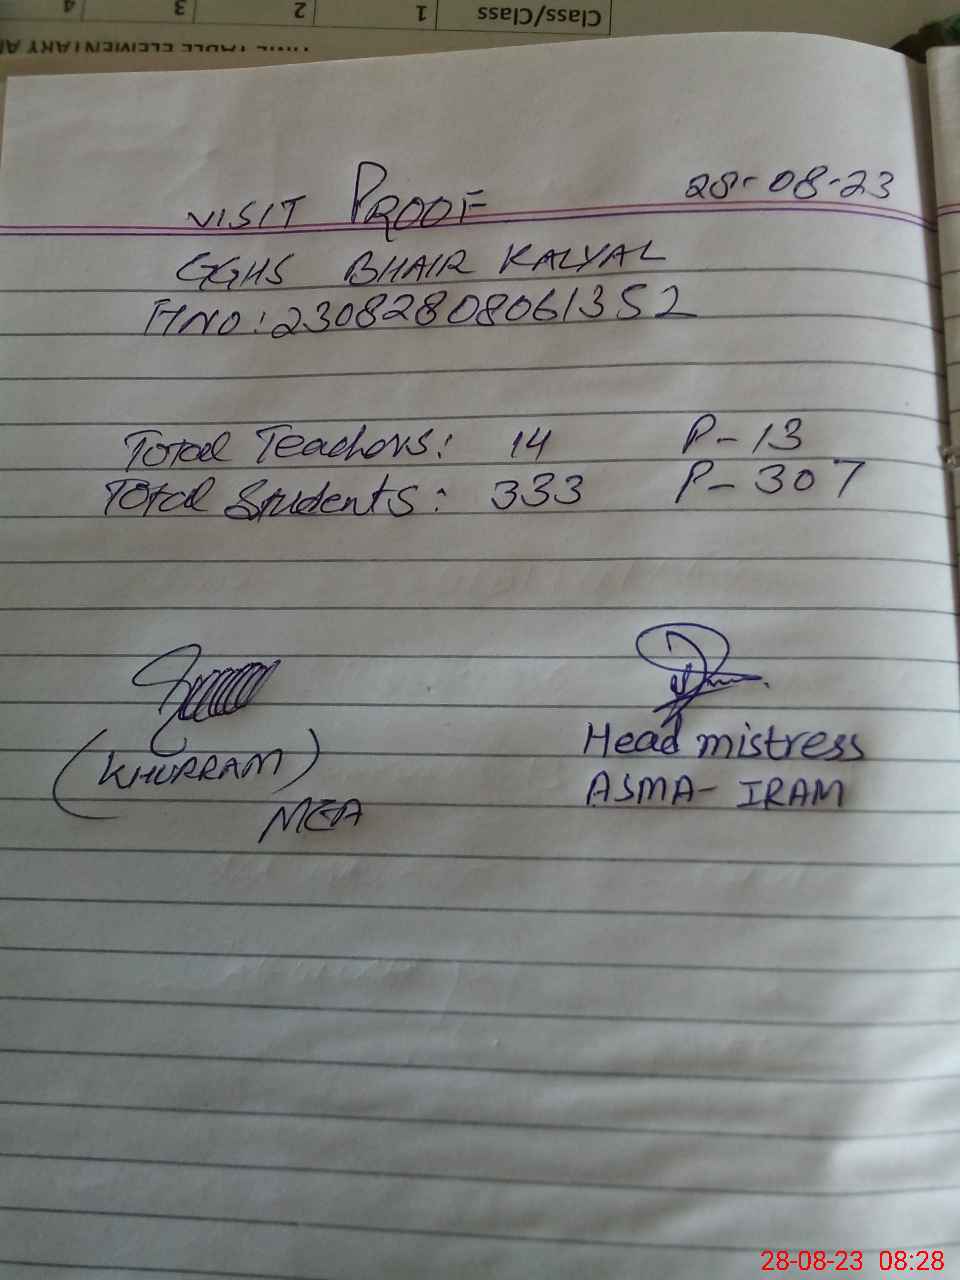 Class/Class 1 2 3 4
TIME TABLE ELEMENTARY
VISIT PROOF 28-08-23
GGHS BHAIR KALYAL
HNO: 23082808061352
Total Teachers: 14 P-13
Total Students: 333 P-307
(KHURRAM)
MEA
Head mistress
ASMA- IRAM
28-08-23 08:28